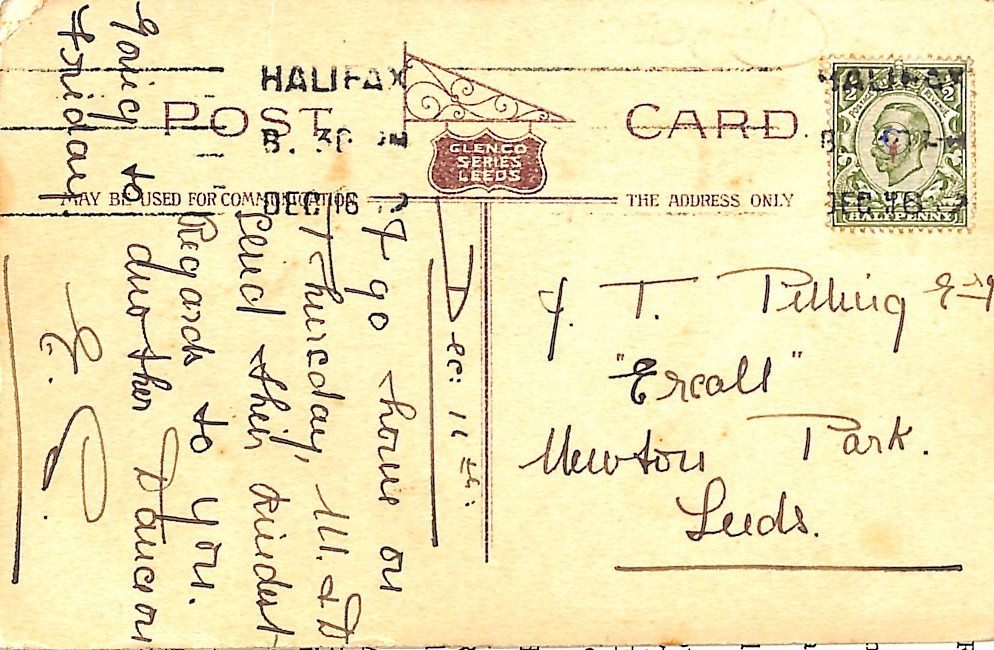 POST CARD.
GLENCO
SERIES
LEEDS
MAY BE USED FOR COMMUNICATION
THE ADDRESS ONLY
HALIFAX
8. 30 PM
DEC 16
HALIFAX
HALFPENNY
Dec: 16th:
I go home on
Thursday, M. & D
send their kindest
Regards to you.
going to another Dance on
Friday
E. C.
J. T. Pilling Esq
"Ercall"
Newton Park.
Leeds.